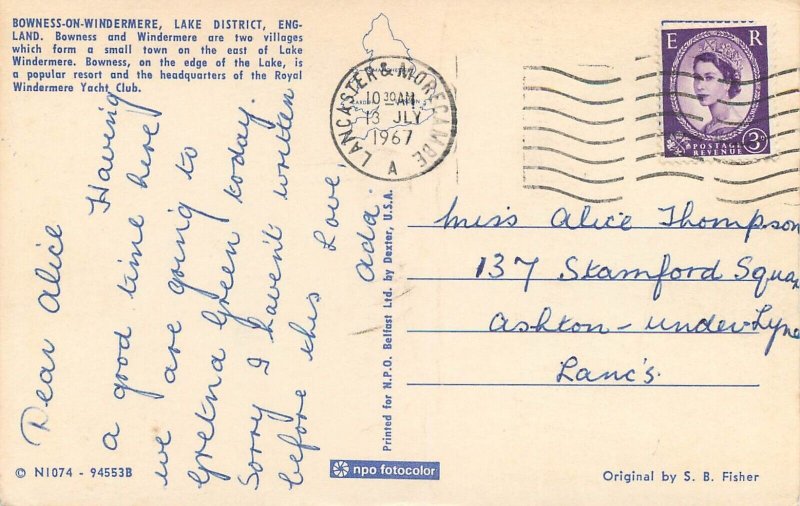 BOWNESS-ON-WINDERMERE, LAKE DISTRICT, ENG-
LAND. Bowness and Windermere are two villages
which form a small town on the east of Lake
Windermere. Bowness, on the edge of the Lake, is
a popular resort and the headquarters of the Royal
Windermere Yacht Club.
Dear Alice
Having
a good time here
we are going to
Gretna Green today.
Sorry I haven't written
before this Love,
Ada.
© N1074 - 94553B
Printed for N.P.O. Belfast Ltd. by Dexter, U.S.A.
npo fotocolor
LANCASTER & MORECAMBE
10 30 AM
13 JLY
1967
A
E R
POSTAGE
REVENUE
3D
Miss Alice Thompson
137 Stamford Squa
Ashton-under-Lyne
Lanc's.
Original by S. B. Fisher